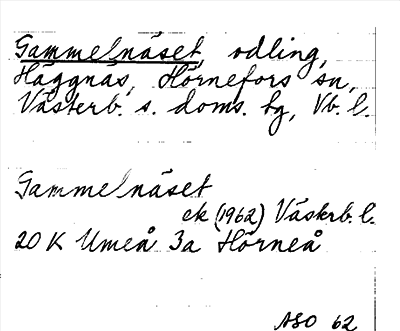 Gammelnäset, odling,
Häggnäs, Hörnefors sn,
Västerb. s. doms. tg, Vb. l.
Gammelnäset
ek (1962) Västerb. l.
20 K Umeå 3a Hörneå
ASO 62